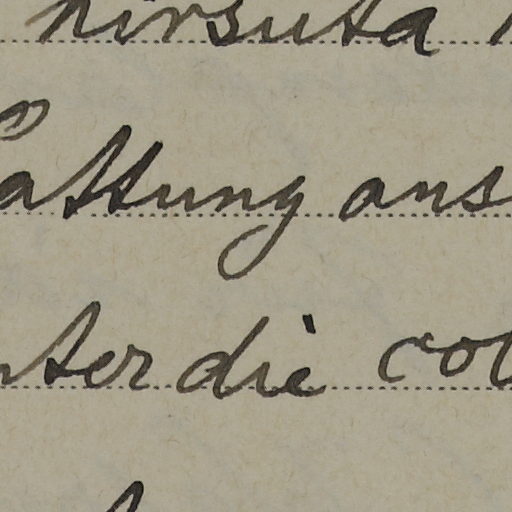 hirsuta
Gattung ans
nter die col